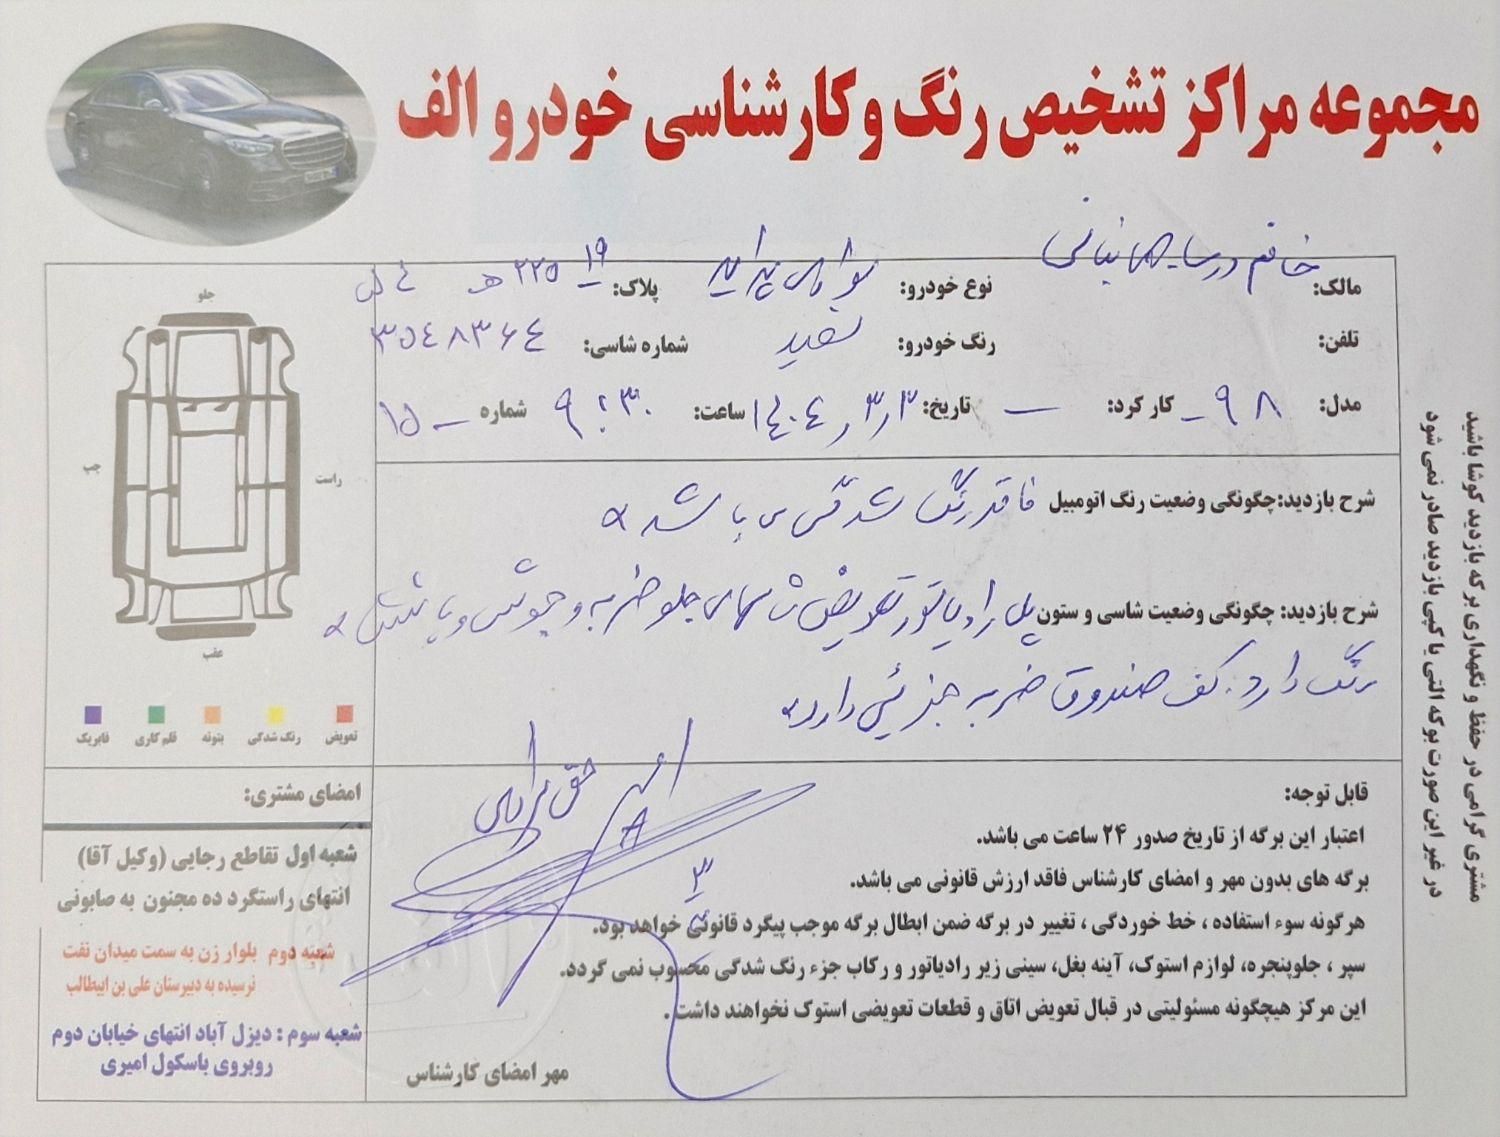 مجموعه مراکز تشخیص رنگ و کارشناسی خودرو الف
مالک: خانم
نوع خودرو: سواری پراید
پلاک: ۱۹ ۲۲۵ هـ
تلفن:
رنگ خودرو: سفید
شماره شاسی: ۳۵۴۸۳۶۴
مدل: ۹۸ -
کار کرد: —
تاریخ: ۱۴۰۴/۳/۳
ساعت: ۹:۳۰
شماره ۱۵ -
شرح بازدید: چگونگی وضعیت رنگ اتومبیل فاقد رنگ شدگی می باشد
شرح بازدید: چگونگی وضعیت شاسی و ستون پل رادیاتور تعویض شاسهای جلو ضربه و جوش و پاشش
رنگ دارد. کف صندوق ضربه جزئی دارد
جلو
چپ
راست
عقب
تعویض
رنگ شدگی
بتونه
قلم کاری
فابریک
امضای مشتری:
شعبه اول تقاطع رجایی (وکیل آقا)
انتهای راستگرد ده مجنون به صابونی
شعبه دوم بلوار زن به سمت میدان نفت
نرسیده به دبیرستان علی بن ابیطالب
شعبه سوم : دیزل آباد انتهای خیابان دوم
روبروی باسکول امیری
قابل توجه:
اعتبار این برگه از تاریخ صدور ۲۴ ساعت می باشد.
برگه های بدون مهر و امضای کارشناس فاقد ارزش قانونی می باشد.
هرگونه سوء استفاده ، خط خوردگی ، تغییر در برگه ضمن ابطال برگه موجب پیگرد قانونی خواهد بود.
سپر ، جلوپنجره، لوازم استوک، آینه بغل، سینی زیر رادیاتور و رکاب جزء رنگ شدگی محسوب نمی گردد.
این مرکز هیچگونه مسئولیتی در قبال تعویض اتاق و قطعات تعویضی استوک نخواهند داشت .
مهر امضای کارشناس
مشتری گرامی در حفظ و نگهداری برگه بازدید کوشا باشید
در غیر این صورت برگه المثنی یا کپی بازدید صادر نمی شود